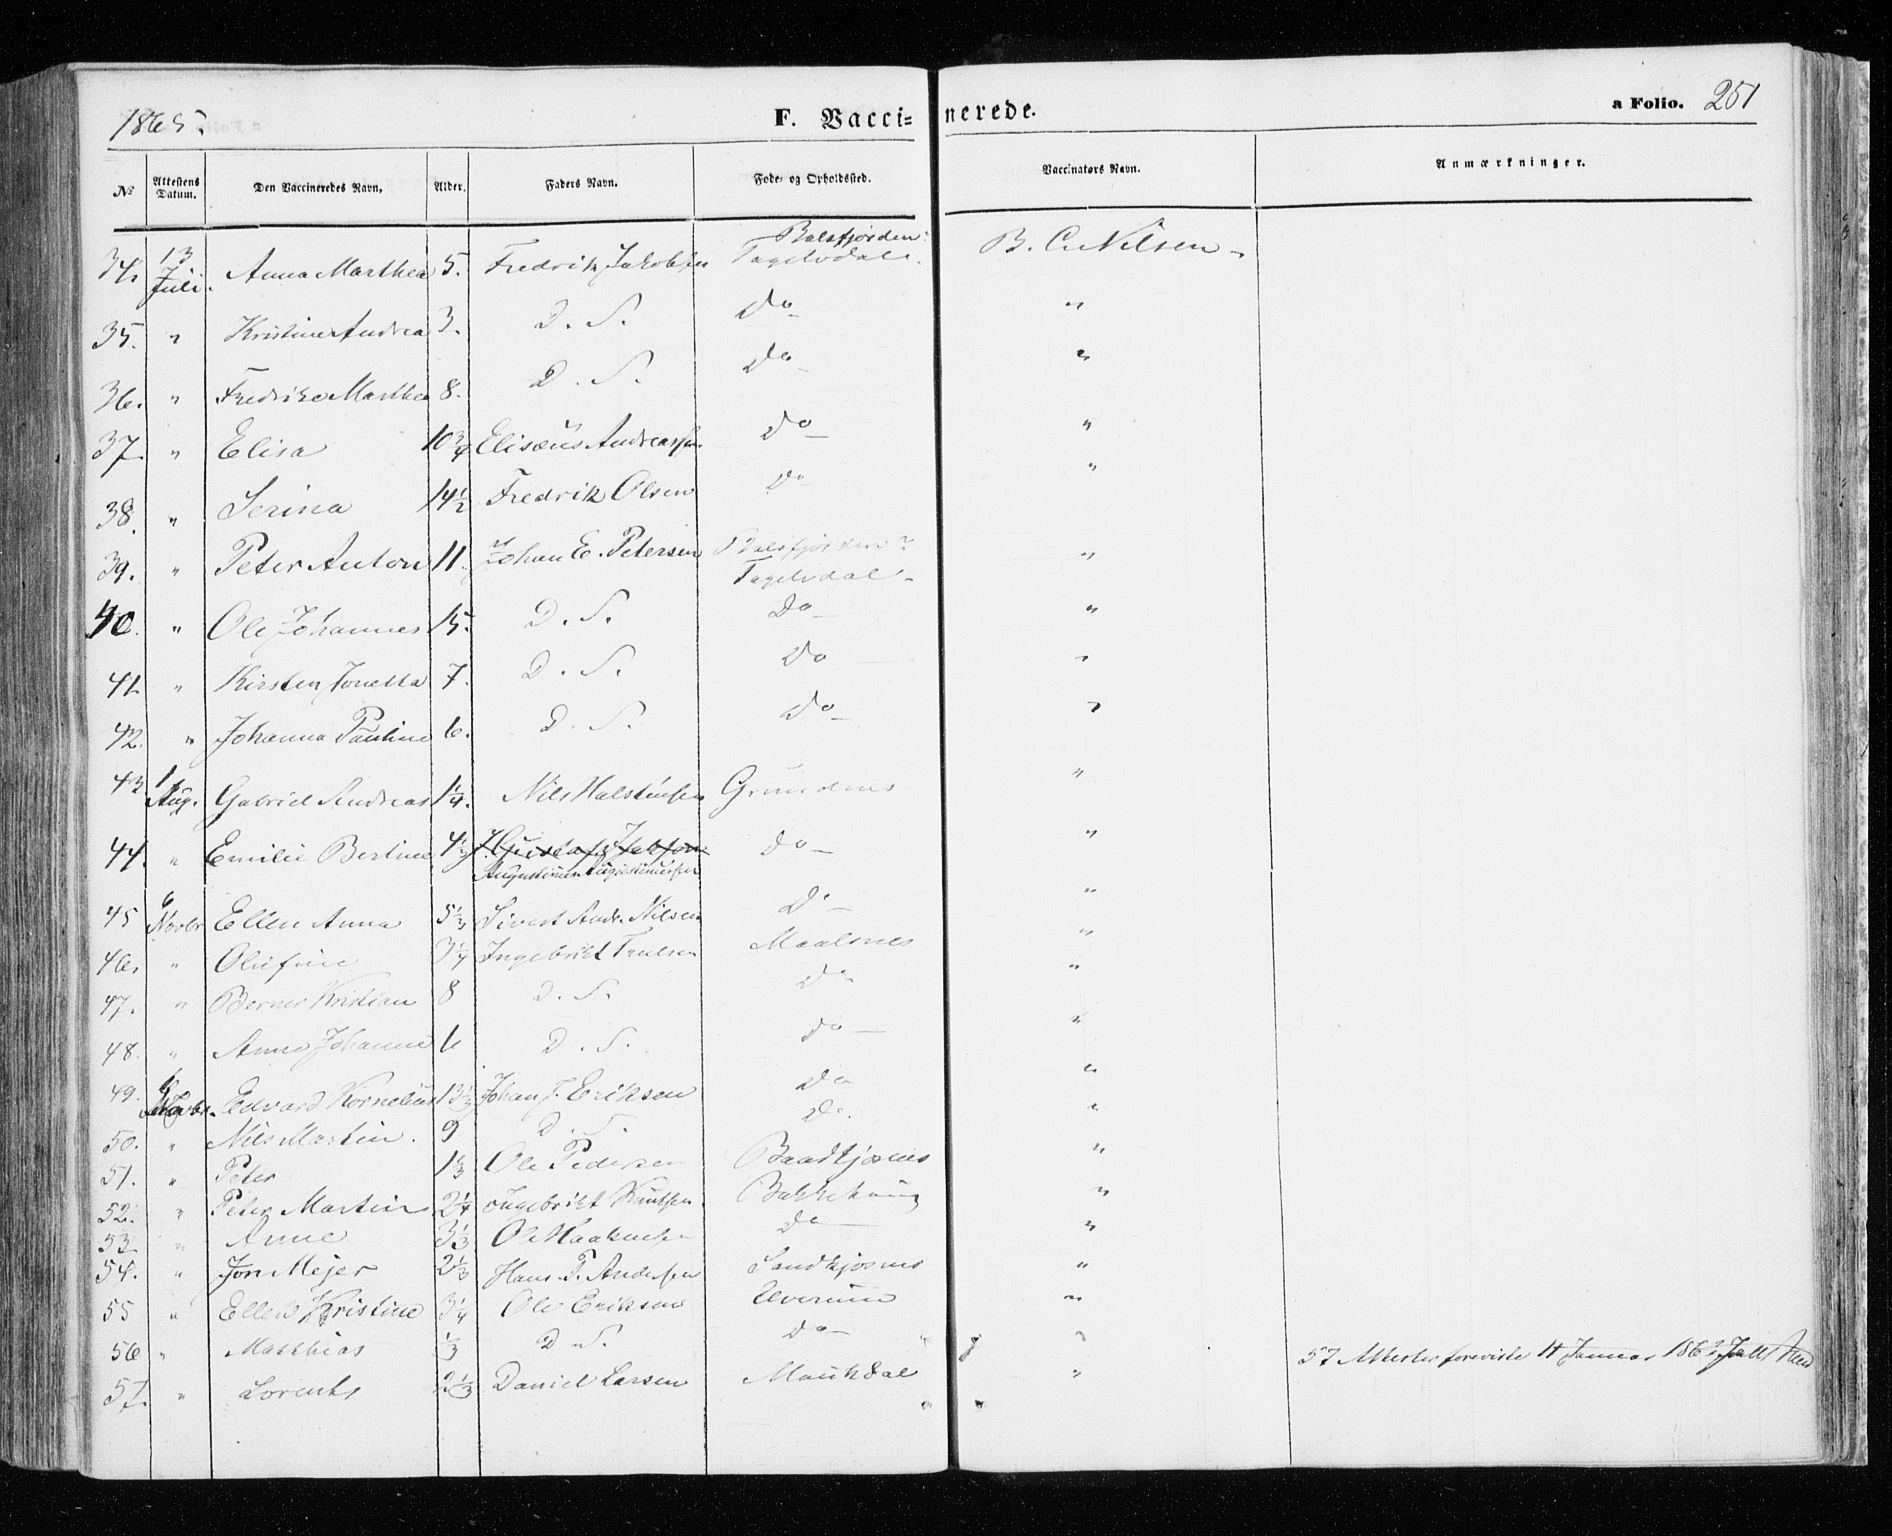 1865.
F. Vaccinerede.
a Folio. 251
No
Attestens Datum.
Den Vaccineredes Navn.
Alder.
Faders Navn.
Føde- og Opholdssted.
Vaccinatørs Navn.
Anmærkninger.
34. 13 Juli. Anna Marthea 5. Fredrik Jakobsen Balsfjorden: Tagelvdal. B. C. Nilsen
35. " Kristine Andrea 3. D. S. Do "
36. " Fredrike Marthea 8. D. S. Do "
37. " Elisa 10 3/4 Elisæus Andreassen Do "
38. " Serina 14 1/2 Fredrik Olsen Do "
39. " Peter Anton 11. Johan E. Petersen Balsfjorden Tagelvdal "
40. " Ole Johannes 15. D. S. Do "
41. " Kirsten Jonetta 7. D. S. Do "
42. " Johanna Pauline 6. D. S. Do "
43. 1 Aug. Gabriel Andreas 1 1/4. Nils Halstensen Grundnes "
44. " Emilie Bertine 4 1/2 Augustinus Augustinussen Do "
45 6 Novbr Ellen Anna 5 1/3 Sivert Andr. Nilsen Do "
46. " Olufine 3 1/4 Ingebrikt Maalsnes "
47. " Berner Kristian 8 D. S. Do "
48. " Anne Johanne 6 D. S. Do "
49. 6 Novbr. Edvard Kornelius 13 1/3 Johan J. Eriksen Do "
50. " Nils Martin. 9 D. S. Do. "
51. " Peter 1 1/3 Ole Pedersen "
52. " Peter Martin 2 1/4 Ingebrikt Knutsen Bakkehaug "
53. " Anne 3 1/3 Ole Haakensen Do "
54. " Jon Mejer 2 1/3 Hans P. Andersen "
55 " Ellen Kristine 3 1/4 Ole Eriksen Elverum "
56 " Matthias 1/3 D. S. Do "
57. " Lorents 2 1/3 Daniel Larsen Maukdal " 57 Attester foreviste 11 Januar